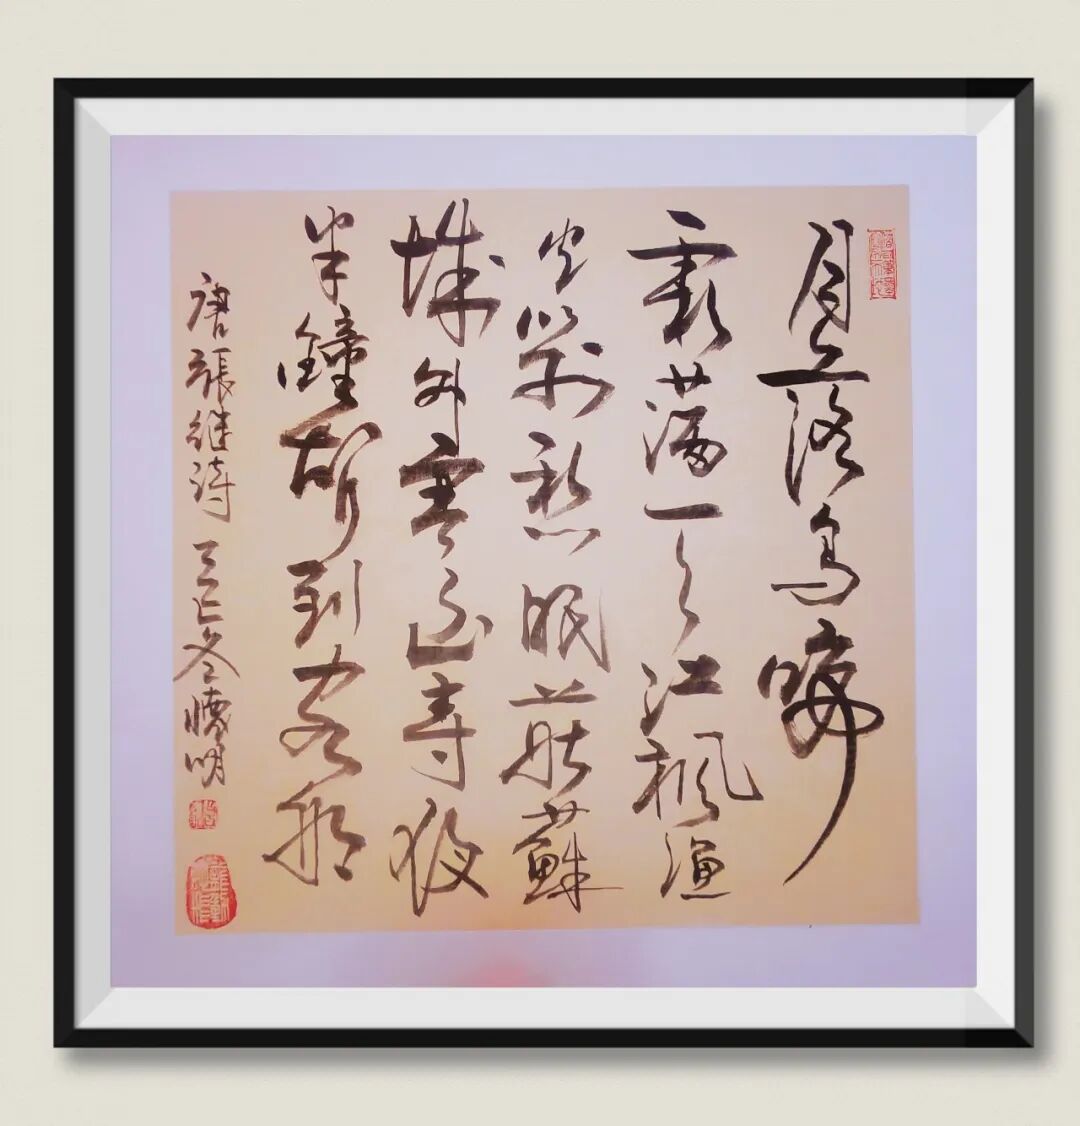 月落烏啼
霜滿天江楓漁
火對愁眠姑蘇
城外寒山寺夜
半鐘聲到客船
唐張继詩 乙巳冬 明